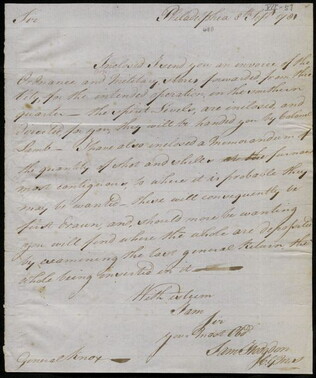 Philadelphia 8th Sept 1781
Sir
Inclosed I send you an invoice of the
Ordnance and Military Stores forwarded from this
City, for the intended operation on the southern
quarter — the Invoices, are inclosed and
directed for you, they will be handed you by Colonel
Lamb — I have also enclosed a Memorandum of
the quantity of Shot and Shells at the furnaces
most contiguous, to where it is probable they
may be wanted — these will consequently be
first drawn, and should more be wanting
you will find where the whole are deposited
by examining the last general Return the
whole being inserted in it —
With Esteem
I am
Sir
your most Obt
Saml Hodgdon
General Knox